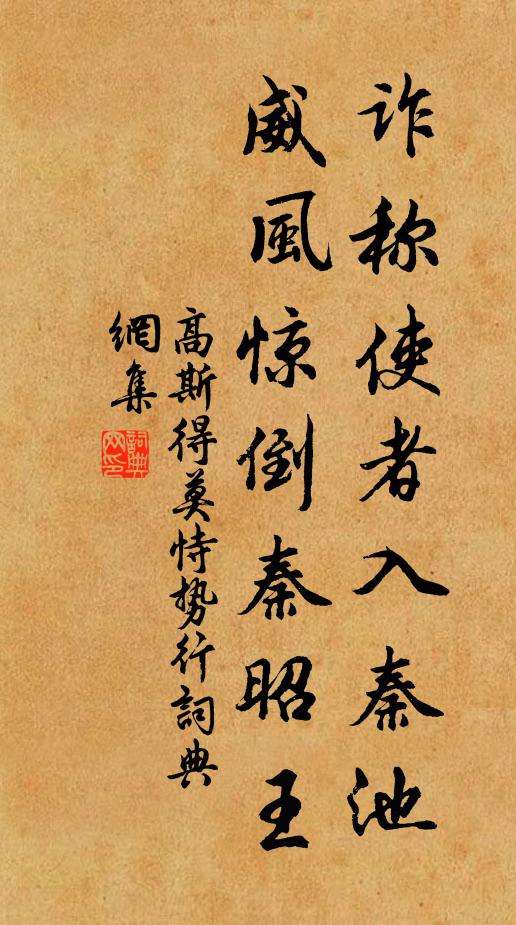 诈称使者入秦池
威風惊倒秦昭王
高斯得莫恃势行詞典
網集
詞典
网印